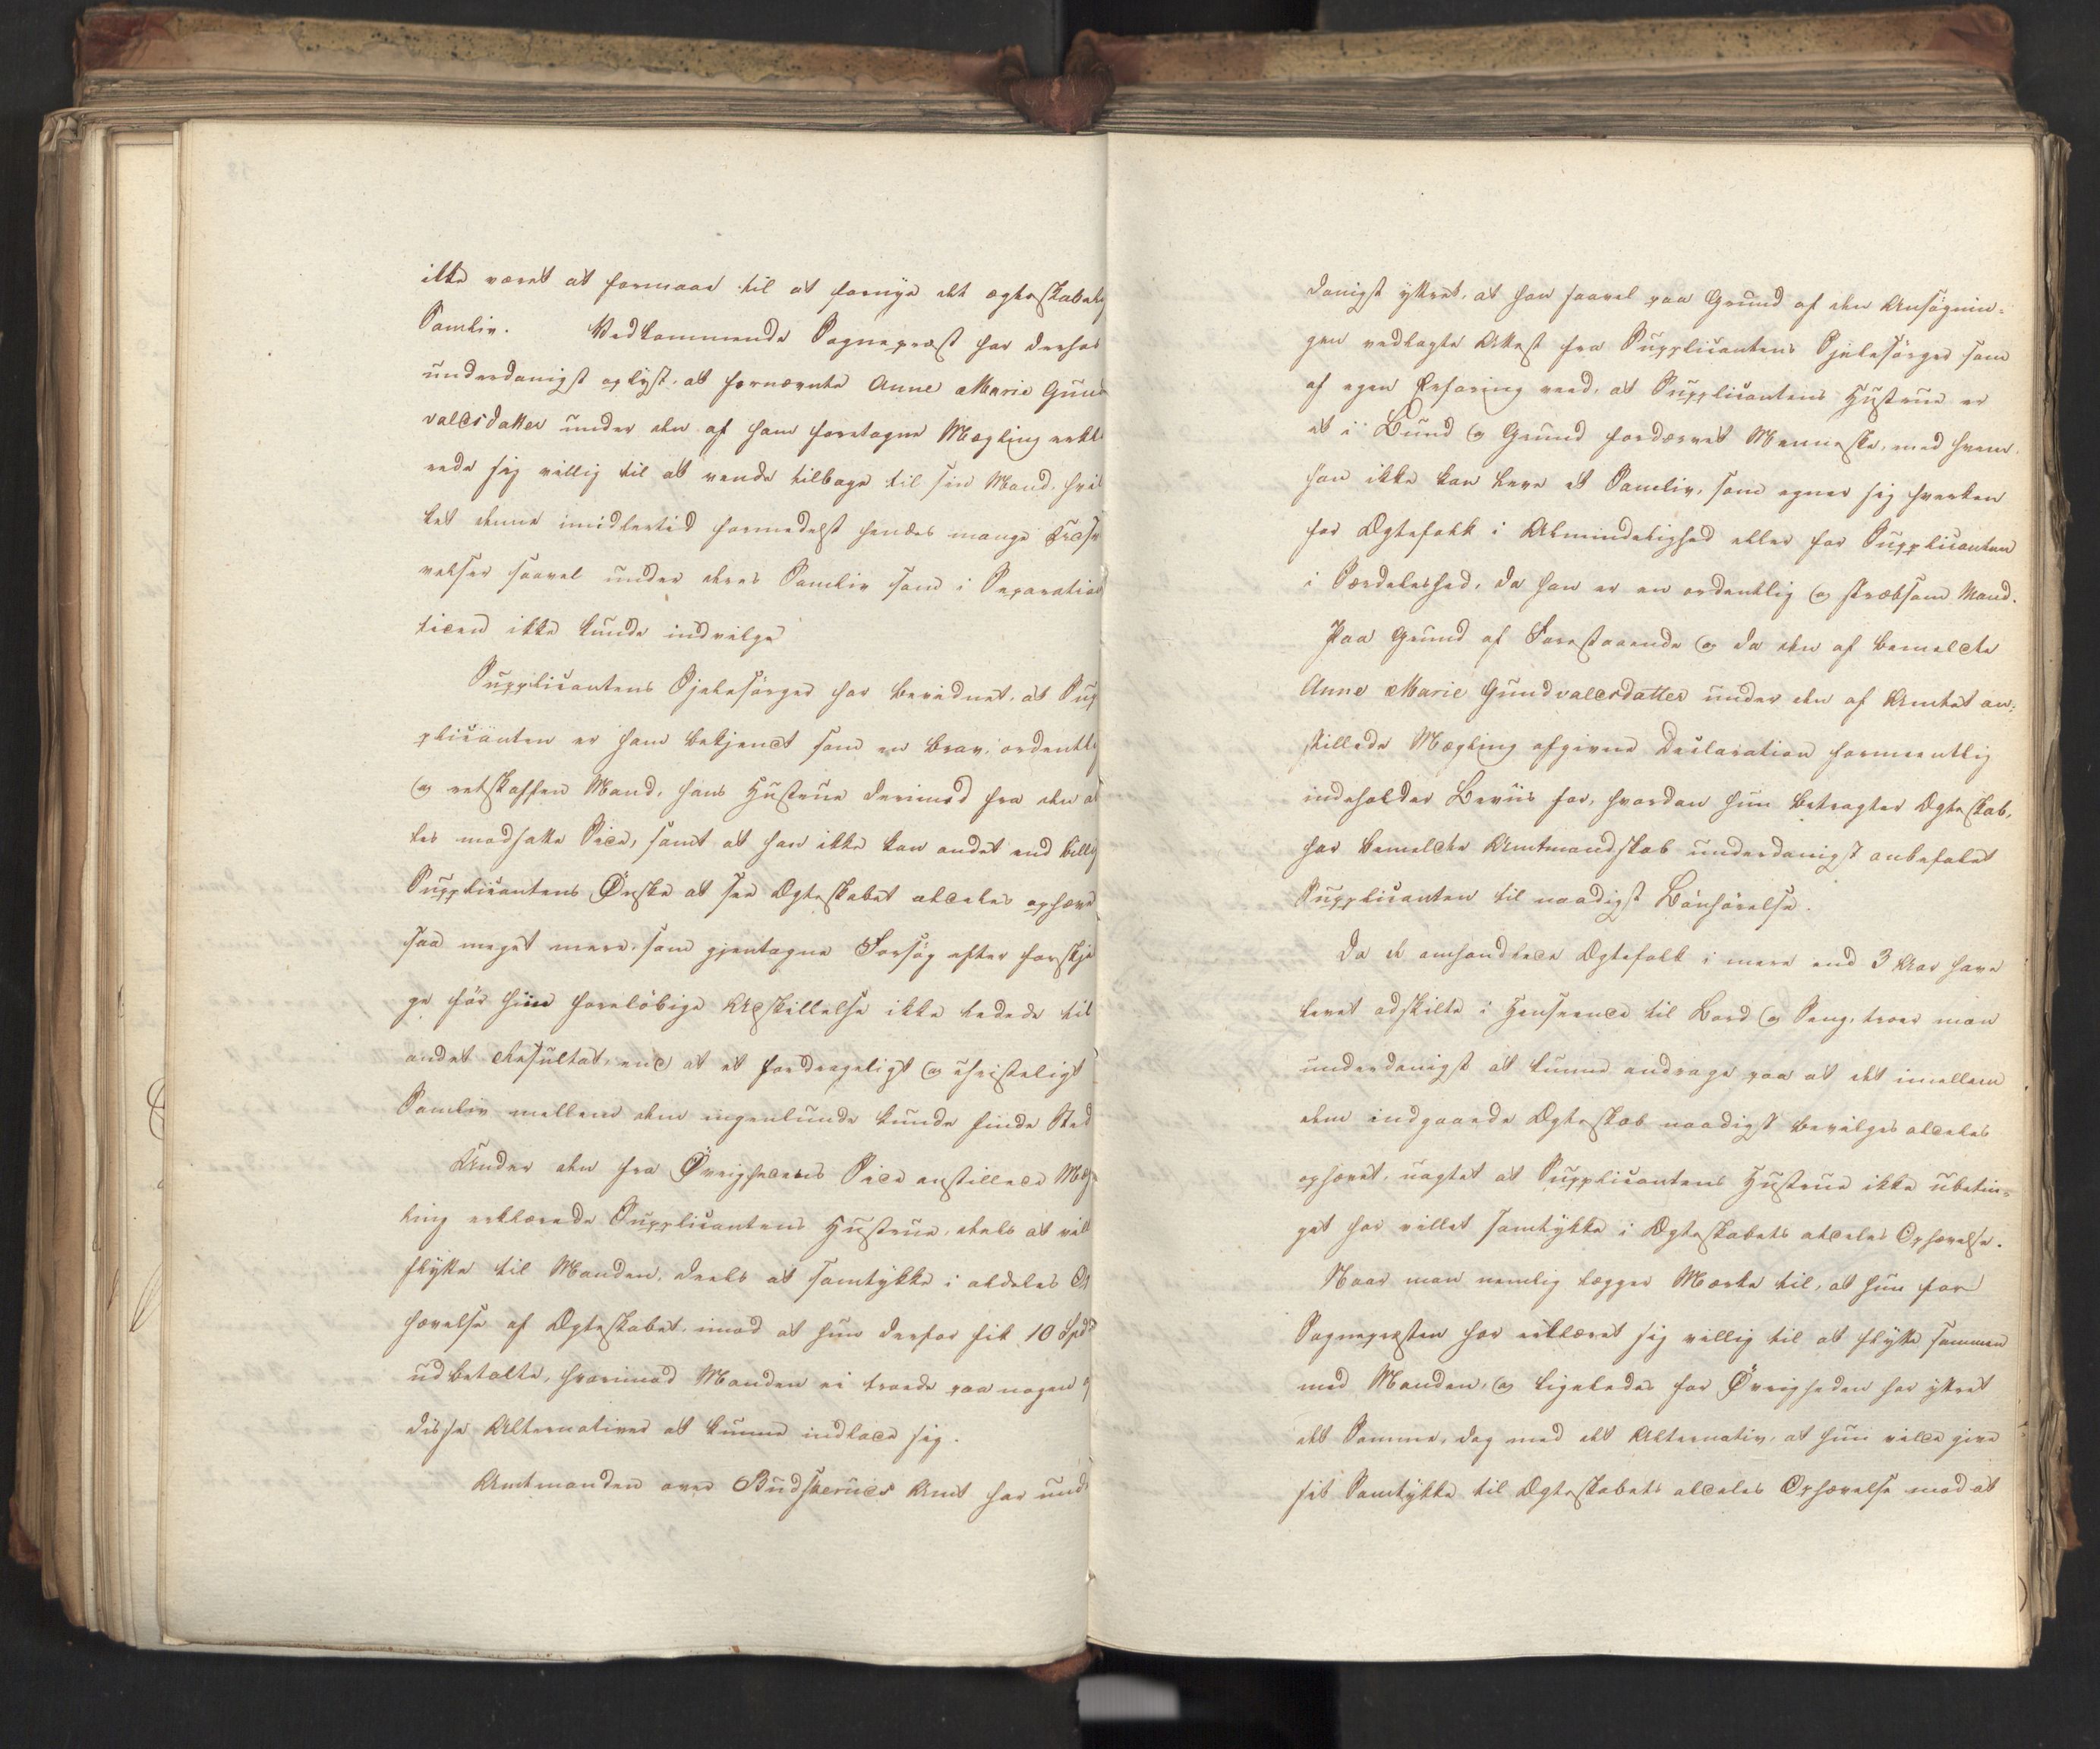 ikke været at formaae til at fornye det ægteskabelig
Samliv. Vedkommende Sognepræst har derhos
underdanigst oplyst, at fornævnte Anne Marie Gund
valdsdatter under den af ham foretagne Mægling erklæ
rede sig villig til at vende tilbage til sin Mand, hvil
ket denne imidlertid formedelst hendes mange Udsvæ
velser saavel under deres Samliv som i Separations
tiden ikke kunde indvilge
Supplicantens Sjelesørger har bevidnet, at Sup
plicanten er ham bekjendt som en brav, ordentlig
og retskaffen Mand, hans Hustrue derimod fra den al
les modsatte Side, samt at han ikke kan andet end billig
Supplicantens Ønske at see Ægteskabet aldeles ophævet
saa meget mere, som gjentagne Forsøg efter forskje
ge før hiin foreløbige Adskillelse ikke ledede til
andet Resultat, end at et fordrageligt og christeligt
Samliv mellem dem ingenlunde kunde finde Sted
Under den fra Øvrighedens Side anstillede Mæg
ling erklærede Supplicantens Hustrue, deels at ville
flytte til Manden, deels at samtykke i aldeles Op
hævelse af Ægteskabet, imod at hun derfor fik 10 Spd
udbetalte, hvorimod Manden ei troede paa nogen af
disse Alternativer at kunne indlade sig.
Amtmanden over Budskeruds Amt har under
danigst yttret, at han saavel paa Grund af den Ansøgnin-
gen vedlagte Attest fra Supplicantens Sjelesørger som
af egen Erfaring veed, at Supplicantens Hustrue er
et i Bund og Grund fordærvet Menneske, med hvem
han ikke kan leve et Samliv, som egner sig hverken
for Ægtefolk i Almindelighed eller for Supplicanten
i Særdeleshed, da han er en ordentlig og stræbsom Mand.
Paa Grund af Forestaaende og da den af bemeldte
Anne Marie Gundvaldsdatter under den af Amtet an-
stillede Mægling afgivne Declaration formeentlig
indeholder Beviis for, hvordan hun betragter Ægteskab,
har bemeldte Amtmandskab underdanigst anbefalet
Supplicanten til naadigst Bønhørelse.
Da de omhandlede Ægtefolk i mere end 3 Aar have
levet adskilte i Henseende til Bord og Seng, troer man
underdanigst at kunne andrage paa at det imellem
dem indgaaede Ægteskab naadigst bevilges aldeles
ophævet, uagtet at Supplicantens Hustrue ikke ubetin-
get har villet samtykke i Ægteskabets aldeles Ophævelse.
Naar man nemlig lægger Mærke til, at hun for
Sognepræsten har erklæret sig villig til at flytte sammen
med Manden, og ligeledes for Øvrigheden har yttret
det Samme, dog med det Alternativ, at hun vilde give
sit Samtykke til Ægteskabets aldeles Ophævelse mod at